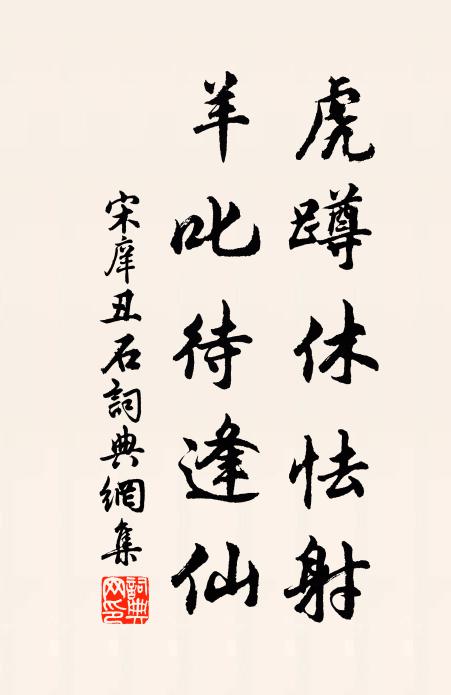 虎蹲休怯射
羊叱待逢仙
宋庠丑石詞典網集
詞典網印